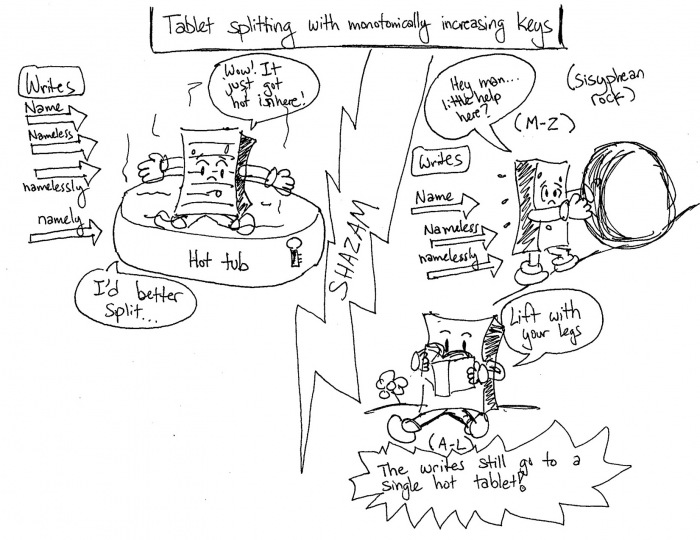 Tablet splitting with monotonically increasing keys
Writes
Name
Nameless
namelessly
namely
Wow! It
just got
hot in here!
Hot tub
I'd better
Split...
SHAZAM
Hey man...
little help
here?
(M-Z)
(Sisyphean
rock)
Writes
Name
Nameless
namelessly
Lift with
your legs
(A-L)
The writes still go to a
single hot tablet!